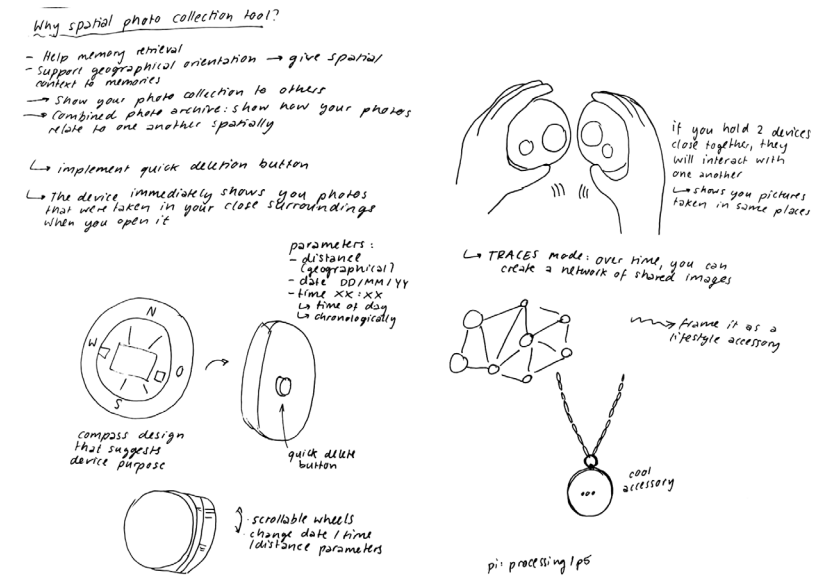 Why spatial photo collection tool?
- Help memory retrieval
- Support geographical orientation → give spatial
context to memories
→ Show your photo collection to others
→ Combined photo archive: show how your photos
relate to one another spatially
↳ implement quick deletion button
↳ The device immediately shows you photos
that were taken in your close surroundings
when you open it
parameters:
- distance
(geographical)
- date DD/MM/YY
- time XX:XX
↳ time of day
↳ chronologically
N
W
O
S
compass design
that suggests
device purpose
quick delete
button
scrollable wheels
change date / time
/ distance parameters
if you hold 2 devices
close together, they
will interact with
one another
↳ shows you pictures
taken in same places
↳ TRACES mode: over time, you can
create a network of shared images
frame it as a
lifestyle accessory
cool
accessory
pi: processing / p5